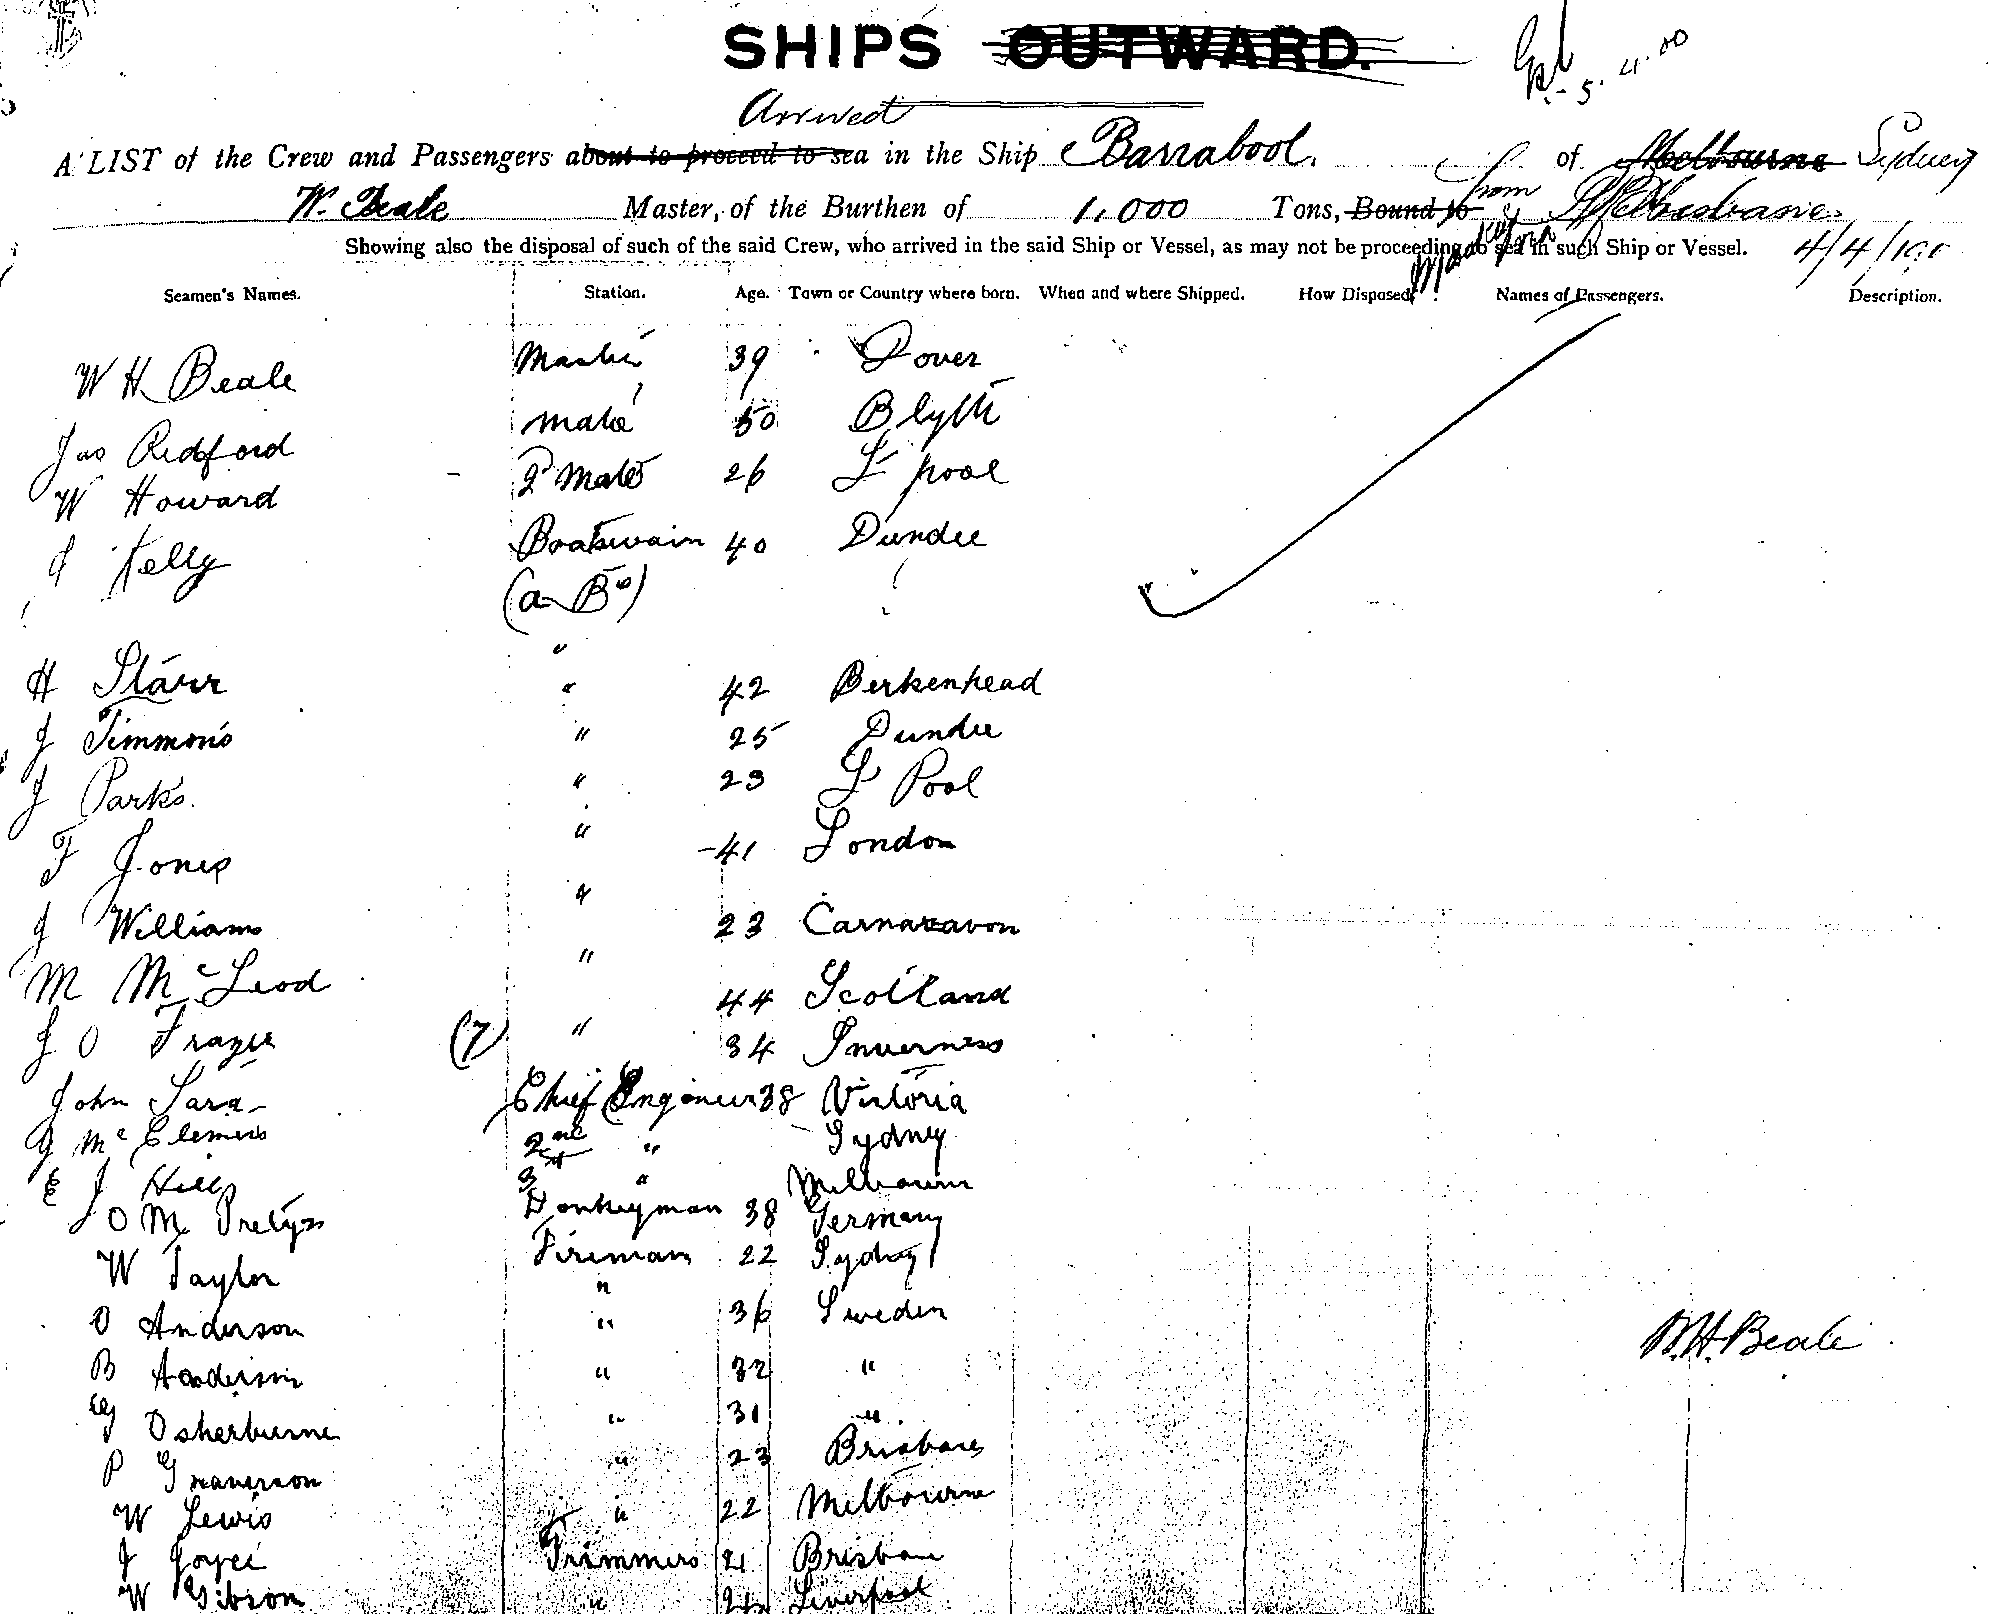 SHIPS OUTWARD.
5.4.00
Arrived
A LIST of the Crew and Passengers about to proceed to sea in the Ship Barrabool. of Melbourne Sydney
W. Beale Master, of the Burthen of 1,000 Tons, Bound to from Brisbane
Showing also the disposal of such of the said Crew, who arrived in the said Ship or Vessel, as may not be proceeding to sea in such Ship or Vessel. 4/4/100
Seamen's Names. Station. Age. Town or Country where born. When and where Shipped. How Disposed. Names of Passengers. Description.
W H Beale Master 39 Dover
Jas Redford Mate 50 Blyth
W Howard 2 Mate 26 L'pool
J Kelly Boatswain 40 Dundee
(a Bs)
"
H Starr " 42 Berkenhead
J Timmons " 25 Dundee
J Parks. " 23 L Pool
F Jones " 41 London
J Williams " 23 Carnaravon
M McLeod " 44 Scotland
J O Frazer (7) " 34 Inverness
John Sara Chief Engineer 38 Victoria
J McClemens 2nd " Sydney
E J Hill 3 " Melbourne
J O M Donkeyman 38 Germany
W Taylor Fireman 22 Sydney
"
O Anderson " 36 Sweden
B Anderson " 32 "
G Osherburne " 31 "
P " 23 Brisbane
W Lewis " 22 Melbourne
J Joyce Trimmers 21 Brisbane
W Gibson " Liverpool
W.H. Beale